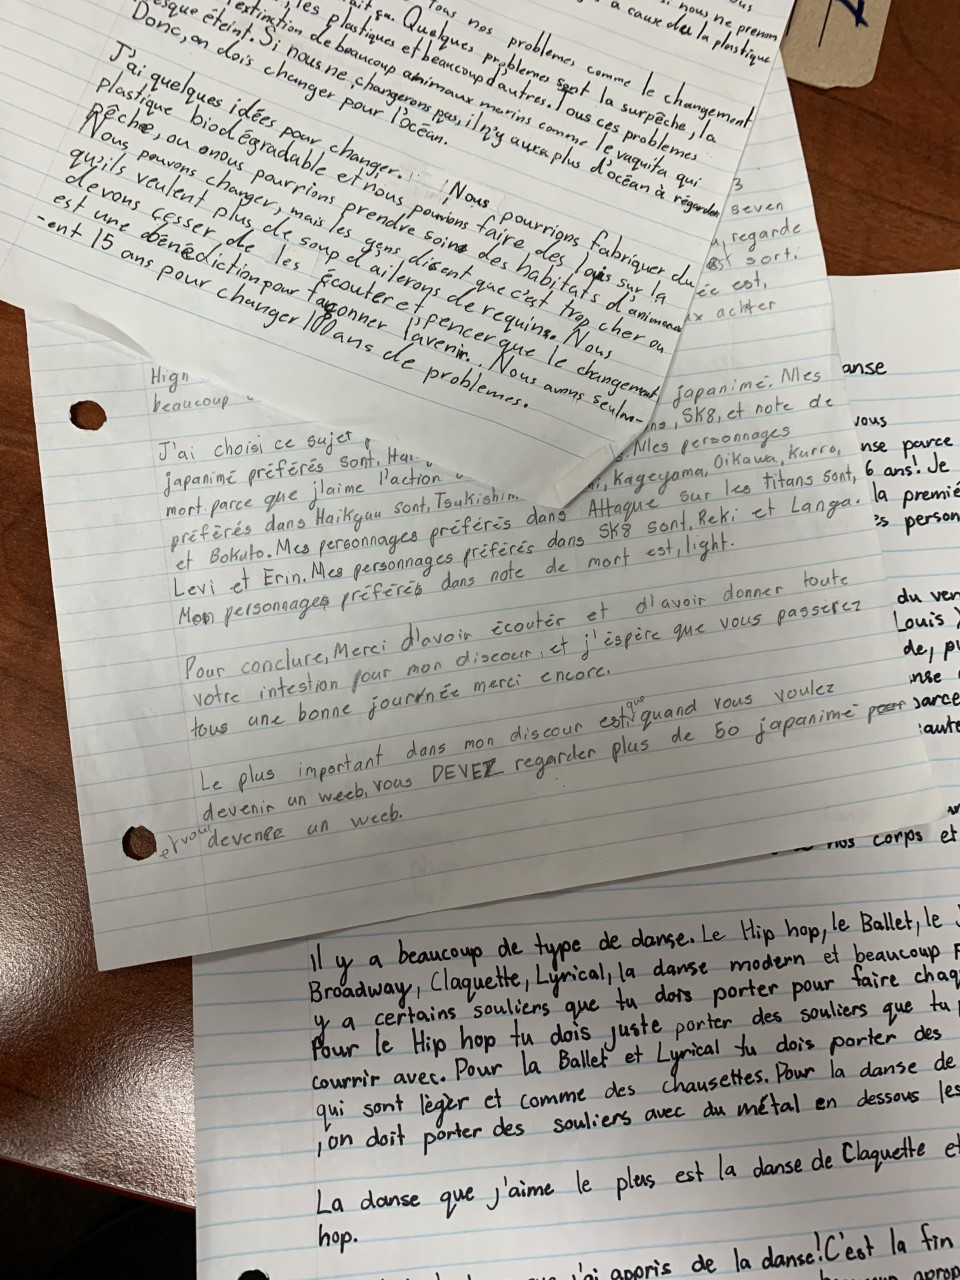 si nous, ne prenon
à cause du la plastique
Tous nos problèmes comme le changement
fait ça. Quelques problèmes sont la surpêche, la
les plastiques et beaucoup d'autres. Tous ces problèmes
extinction de beaucoup animaux marins comme le vaquita qui
presque éteint. Si nous ne changerons pas, il n'y auxa plus d'océan à régarder
Donc, on dois changer pour l'océan.
J'ai quelques idées pour changer. Nous pourrions fabriquer du
plastique biodégradable et nous pouvions faire des lois sur la
Pêche, ou nous pourrions prendre soin des habitats d'animaux
Nous pouvons changer, mais les gens disent que c'est trop cher ou
qu'ils veulent plus de soup d'ailerons de requins. Nous
devons cesser de les écouter et pencer que le changement
est une bénédiction pour façonner l'avenir. Nous avons seulm-
-ent 15 ans pour changer 100 ans de problemes.
3
seven
regarde
est sorti
ée est,
ux achter
Hign
beaucoup
japanimé. Mes
SK8, et note de
J'ai choisi ce sujet
japanimé préférés sont, Hai
mort parce que j'aime l'action
Mes personnages
préférés dans Haikyuu sont, Tsukishim
Kageyama, Oikawa, Kurro,
et Bokuto. Mes personnages préférés dans Attaque sur les titans sont,
Levi et Erin. Mes personnages préférés dans SK8 sont, Reki et Langa.
Mon personnages préférés dans note de mort est, light.
Pour conclure, Merci d'avoir écoutér et d'avoir donner toute
votre intestion pour mon discour, et j'éspère que vous passerez
tous une bonne journnée merci encore.
Le plus important dans mon discour est, que quand vous voulez
devenir un weeb, vous DEVEZ regarder plus de 50 japanimé
et vous devence un weeb.
anse
vous
nse parce
6 ans! Je
la premié
s person
du ven
Louis
de, pu
nse
parce
aute
nos corps et
Il y a beaucoup de type de danse. Le Hip hop, le Ballet, le J
Broadway, Claquette, Lyrical, la danse modern et beaucoup
y a certains souliers que tu dois porter pour faire chaq
Pour le Hip hop tu dois juste porter des souliers que tu
courrir avec. Pour la Ballet et Lyrical tu dois porter des
qui sont lèger et comme des chausettes. Pour la danse de
, on doit porter des souliers avec du métal en dessous les
La danse que j'aime le plus est la danse de Claquette et
hop.
j'ai appris de la danse! C'est la fin